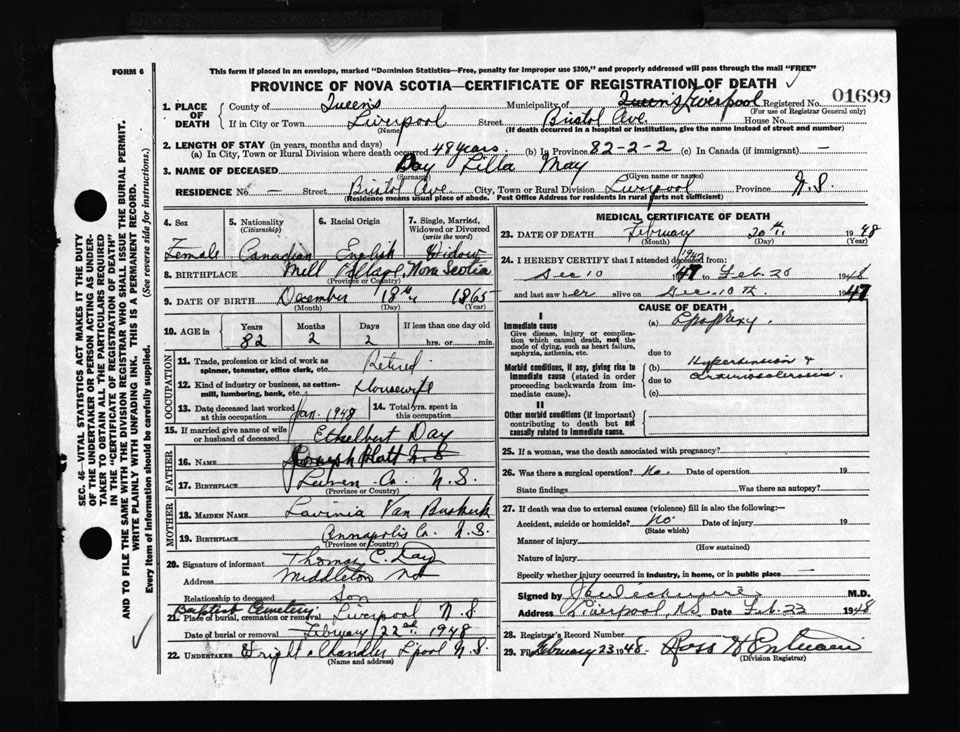 FORM 6
This form if placed in an envelope, marked "Dominion Statistics—Free, penalty for improper use $300," and properly addressed will pass through the mail "FREE"
PROVINCE OF NOVA SCOTIA—CERTIFICATE OF REGISTRATION OF DEATH
01699
1. PLACE OF DEATH County of Queens Municipality of Queens Liverpool Registered No.
(For use of Registrar General only)
If in City or Town Liverpool Street Bristol Ave. House No.
(Name) (If death occurred in a hospital or institution, give the name instead of street and number)
2. LENGTH OF STAY (in years, months and days)
(a) In City, Town or Rural Division where death occurred 48 years. (b) In Province 82-2-2 (c) In Canada (if immigrant) —
3. NAME OF DECEASED Day Lilla May
(Surname) (Given name or names)
RESIDENCE No — Street Bristol Ave. City, Town or Rural Division Liverpool Province N.S.
(Residence means usual place of abode. Post Office Address for residents in rural parts not sufficient)
4. Sex Female
5. Nationality (Citizenship) Canadian
6. Racial Origin English
7. Single, Married, Widowed or Divorced (write the word) Widow
8. BIRTHPLACE Mill Village, Nova Scotia
(Province or Country)
9. DATE OF BIRTH December 18th 1865
(Month) (Day) (Year)
10. AGE in Years Months Days If less than one day old
82 2 2 hrs. or min.
OCCUPATION
11. Trade, profession or kind of work as spinner, teamster, office clerk, etc. Retired
12. Kind of industry or business, as cotton-mill, lumbering, bank, etc. Housewife
13. Date deceased last worked at this occupation Jan. 1948
14. Total yrs. spent in this occupation
15. If married give name of wife or husband of deceased Ethelbert Day
FATHER
16. NAME Platt N.S.
17. BIRTHPLACE Co. N.S.
(Province or Country)
MOTHER
18. MAIDEN NAME Lavinia Van Buskirk
19. BIRTHPLACE Annapolis Co. N.S.
(Province or Country)
20. Signature of informant Thomas C. Day
Address Middleton NS
Relationship to deceased Son
Baptist Cemetery
21. Place of burial, cremation or removal Liverpool N.S
Date of burial or removal February 22nd. 1948
22. UNDERTAKER Wright & Chandler L'pool N.S.
(Name and address)
MEDICAL CERTIFICATE OF DEATH
23. DATE OF DEATH February 20th. 1948
(Month) (Day) (Year)
24. I HEREBY CERTIFY that I attended deceased from:
Dec 10 1947 to Feb. 20 1948
and last saw her alive on Dec. 10th. 1947
CAUSE OF DEATH
I
Immediate cause
Give disease, injury or complication which caused death, not the mode of dying, such as heart failure, asphyxia, asthenia, etc.
(a) Apoplexy.
due to
Morbid conditions, if any, giving rise to immediate cause (stated in order proceeding backwards from immediate).
(b) Hypertension &
due to arteriosclerosis.
(c)
II
Other morbid conditions (if important) contributing to death but not causally related to immediate cause.
25. If a woman, was the death associated with pregnancy?
26. Was there a surgical operation? No. Date of operation 19
State findings Was there an autopsy?
27. If death was due to external causes (violence) fill in also the following:—
Accident, suicide or homicide? No Date of injury 19
(State which)
Manner of injury
(How sustained)
Nature of injury
Specify whether injury occurred in industry, in home, or in public place —
Signed by M.D.
Address Liverpool, NS Date Feb. 23 1948
28. Registrar's Record Number
29. February 23 1948
(Division Registrar)
SEC. 46—VITAL STATISTICS ACT MAKES IT THE DUTY OF THE UNDERTAKER OR PERSON ACTING AS UNDERTAKER TO OBTAIN ALL THE PARTICULARS REQUIRED IN THE "CERTIFICATE OF REGISTRATION OF DEATH" AND TO FILE THE SAME WITH THE DIVISION REGISTRAR WHO SHALL ISSUE THE BURIAL PERMIT.
WRITE PLAINLY WITH UNFADING INK. THIS IS A PERMANENT RECORD.
Every item of information should be carefully supplied. (See reverse side for instructions.)